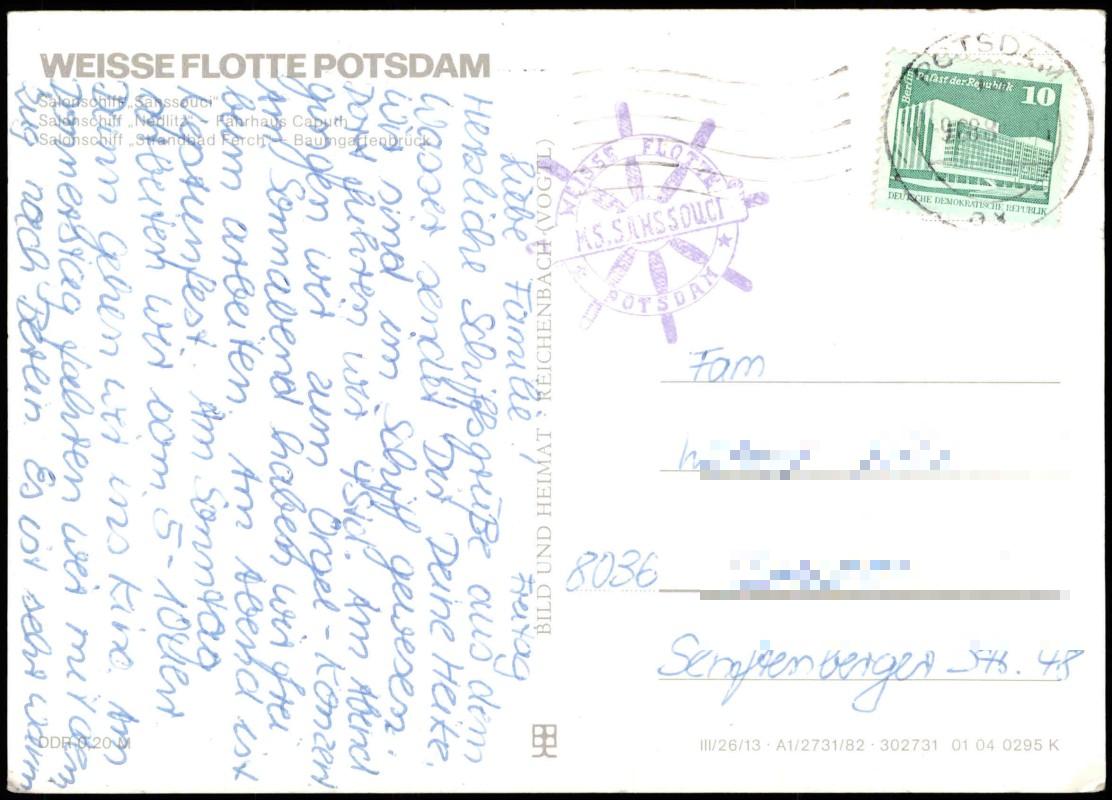 WEISSE FLOTTE POTSDAM
Salonschiff „Sanssouci"
Salonschiff „Nedlitz" – Fährhaus Caputh
Salonschiff „Strandbad Ferch" – Baumgartenbrück
Freitag
Liebe Familie,
Herzliche Schiffsgrüße aus dem
Wasser sendet Dir Deine Heike.
Wir sind im Schiff gewesen.
Dort fuhren wir 4 Std. Am Abend
gingen wir zum Orgel-Konzert
Am Sonnabend haben wir frei
vom arbeiten. Am Abend ist
Neptunfest. Am Sonntag
arbeiten wir vom 5-10 Uhr
Dann gehen wir ins Kino. Am
Donnerstag fahren wir mit dem
Zug nach Berlin. Es ist sehr warm
DDR 0,20 M
BILD UND HEIMAT · REICHENBACH (VOGTL)
WEISSE FLOTTE
MS. SANSSOUCI
POTSDAM
POTSDAM
Berlin Palast der Republik
10
DEUTSCHE DEMOKRATISCHE REPUBLIK
Fam
8036
Senftenberger Str. 48
III/26/13 · A1/2731/82 · 302731 01 04 0295 K